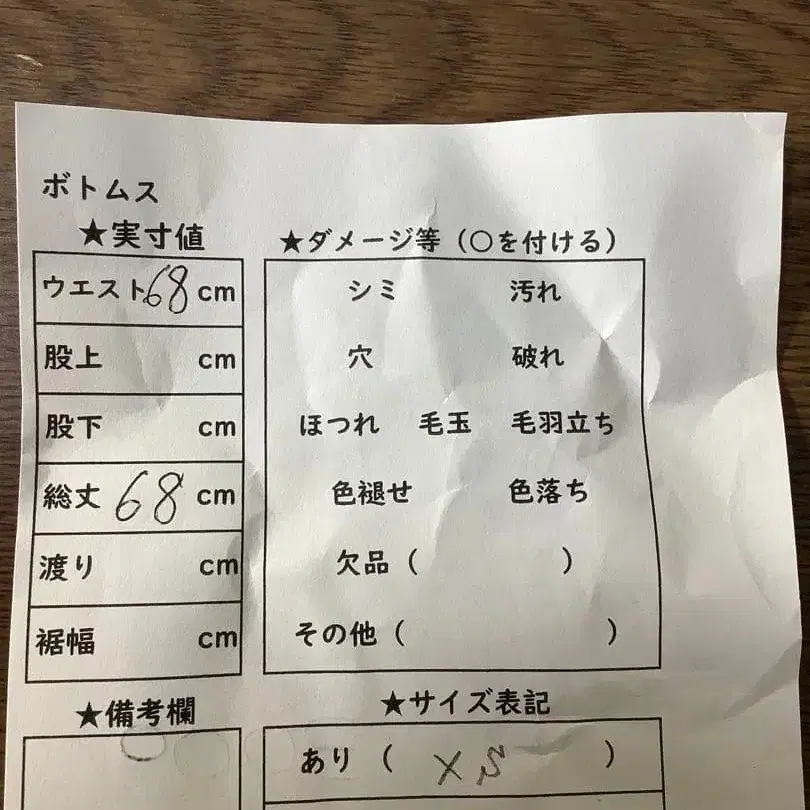 ボトムス
★実寸値
ウエスト68cm
股上 cm
股下 cm
総丈 68 cm
渡り cm
裾幅 cm
★備考欄
★ダメージ等（○を付ける）
シミ 汚れ
穴 破れ
ほつれ 毛玉 毛羽立ち
色褪せ 色落ち
欠品（ ）
その他（ ）
★サイズ表記
あり（ XS ）